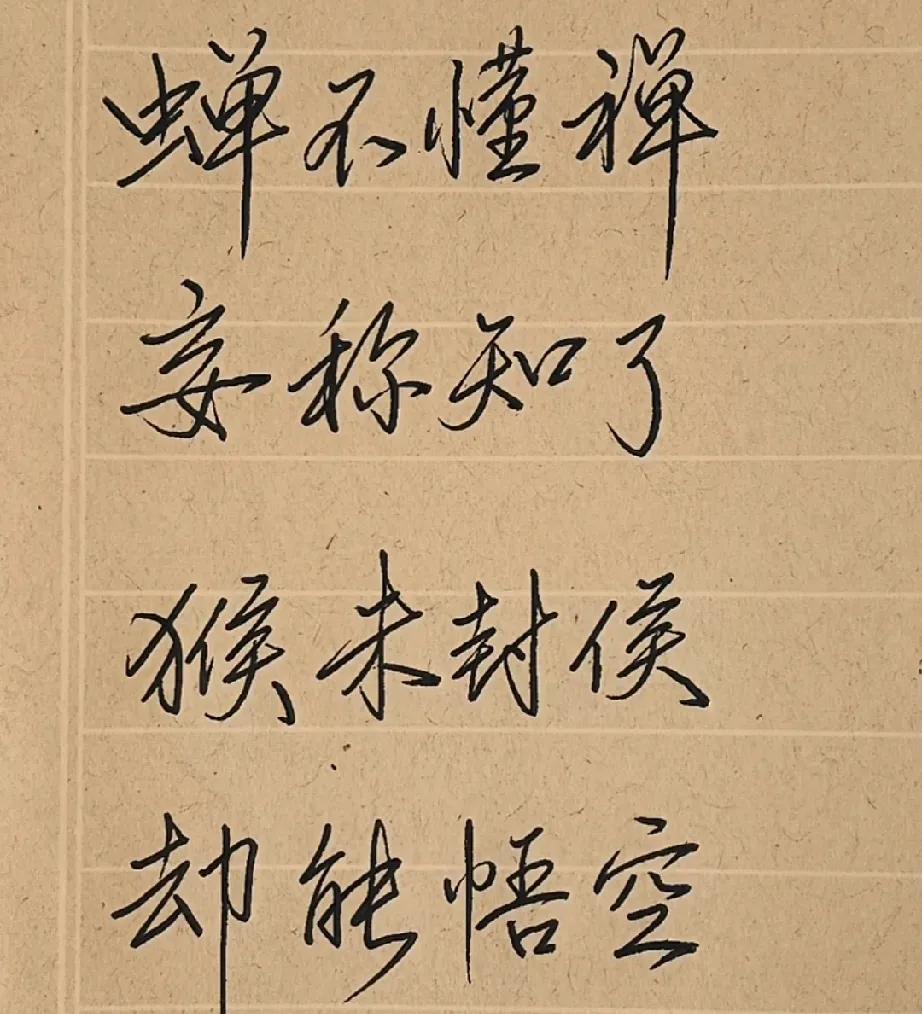 蝉不懂禅
妄称知了
猴未封侯
却能悟空